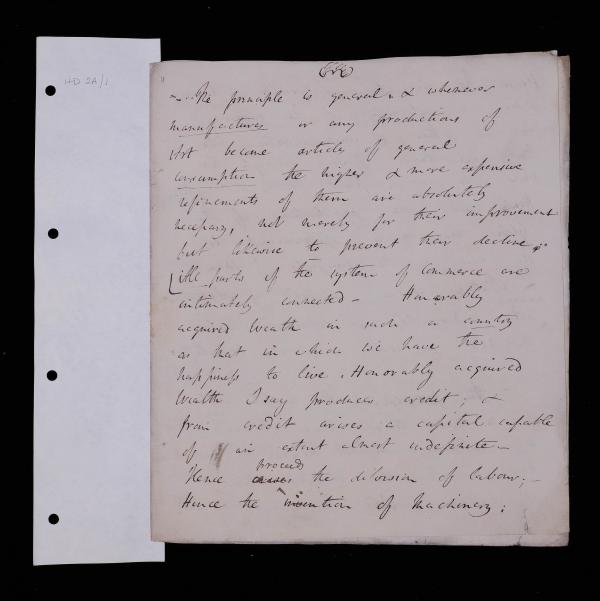 HD 2A/1
~ . The principle is general & whenever
manufactures or any productions of
Art become articles of general
consumption the higher & more expensive
refinements of them are absolutely
necessary, not merely for their improvement
but likewise to prevent their decline
All parts of the system of Commerce are
intimately connected - Honorably
acquired Wealth in such a country
as that in which we have the
happiness to live, Honorably acquired
Wealth I say produces credit; &
from credit arises a capital capable
of an extent almost indefinite -
proceeds
Hence the division of labour; -
Hence the invention of Machinery;